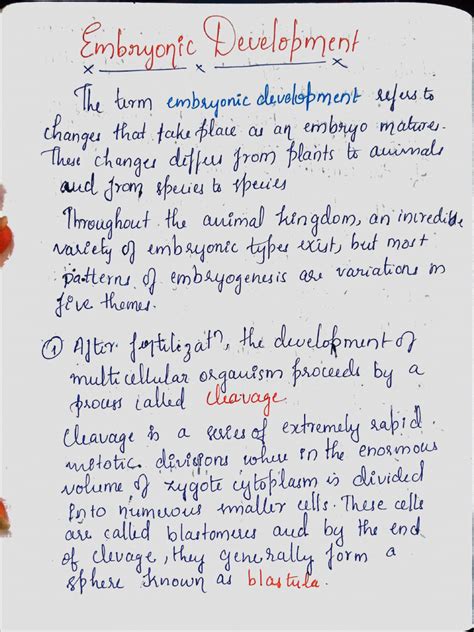 Embryonic Development
The term embryonic development refers to
changes that take place as an embryo matures.
These changes differs from plants to animals
and from species to species
Throughout the animal kingdom, an incredible
variety of embryonic types exist, but most
patterns of embryogenesis are variations on
five themes.
① After fertilizatn, the development of
multicellular organism proceeds by a
process called cleavage
Cleavage is a series of extremely rapid
mitotic divisions where in the enormous
volume of zygote cytoplasm is divided
into numerous smaller cells. These cells
are called blastomeres and by the end
of clevage, they generally form a
sphere known as blastula.